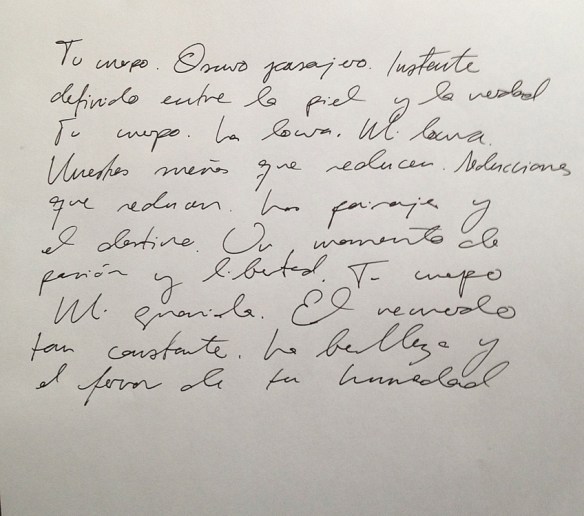 Tu cuerpo. Oscuro pasajero. Instante
definido entre la piel y la verdad
Tu cuerpo. La locura. Mi locura.
Nuestros sueños que reducen. Seducciones
que reducen. Los paisajes y
el destino. Un momento de
pasión y libertad. Tu cuerpo
Mi guarida. El recuerdo
tan constante. La belleza y
el favor de tu humedad